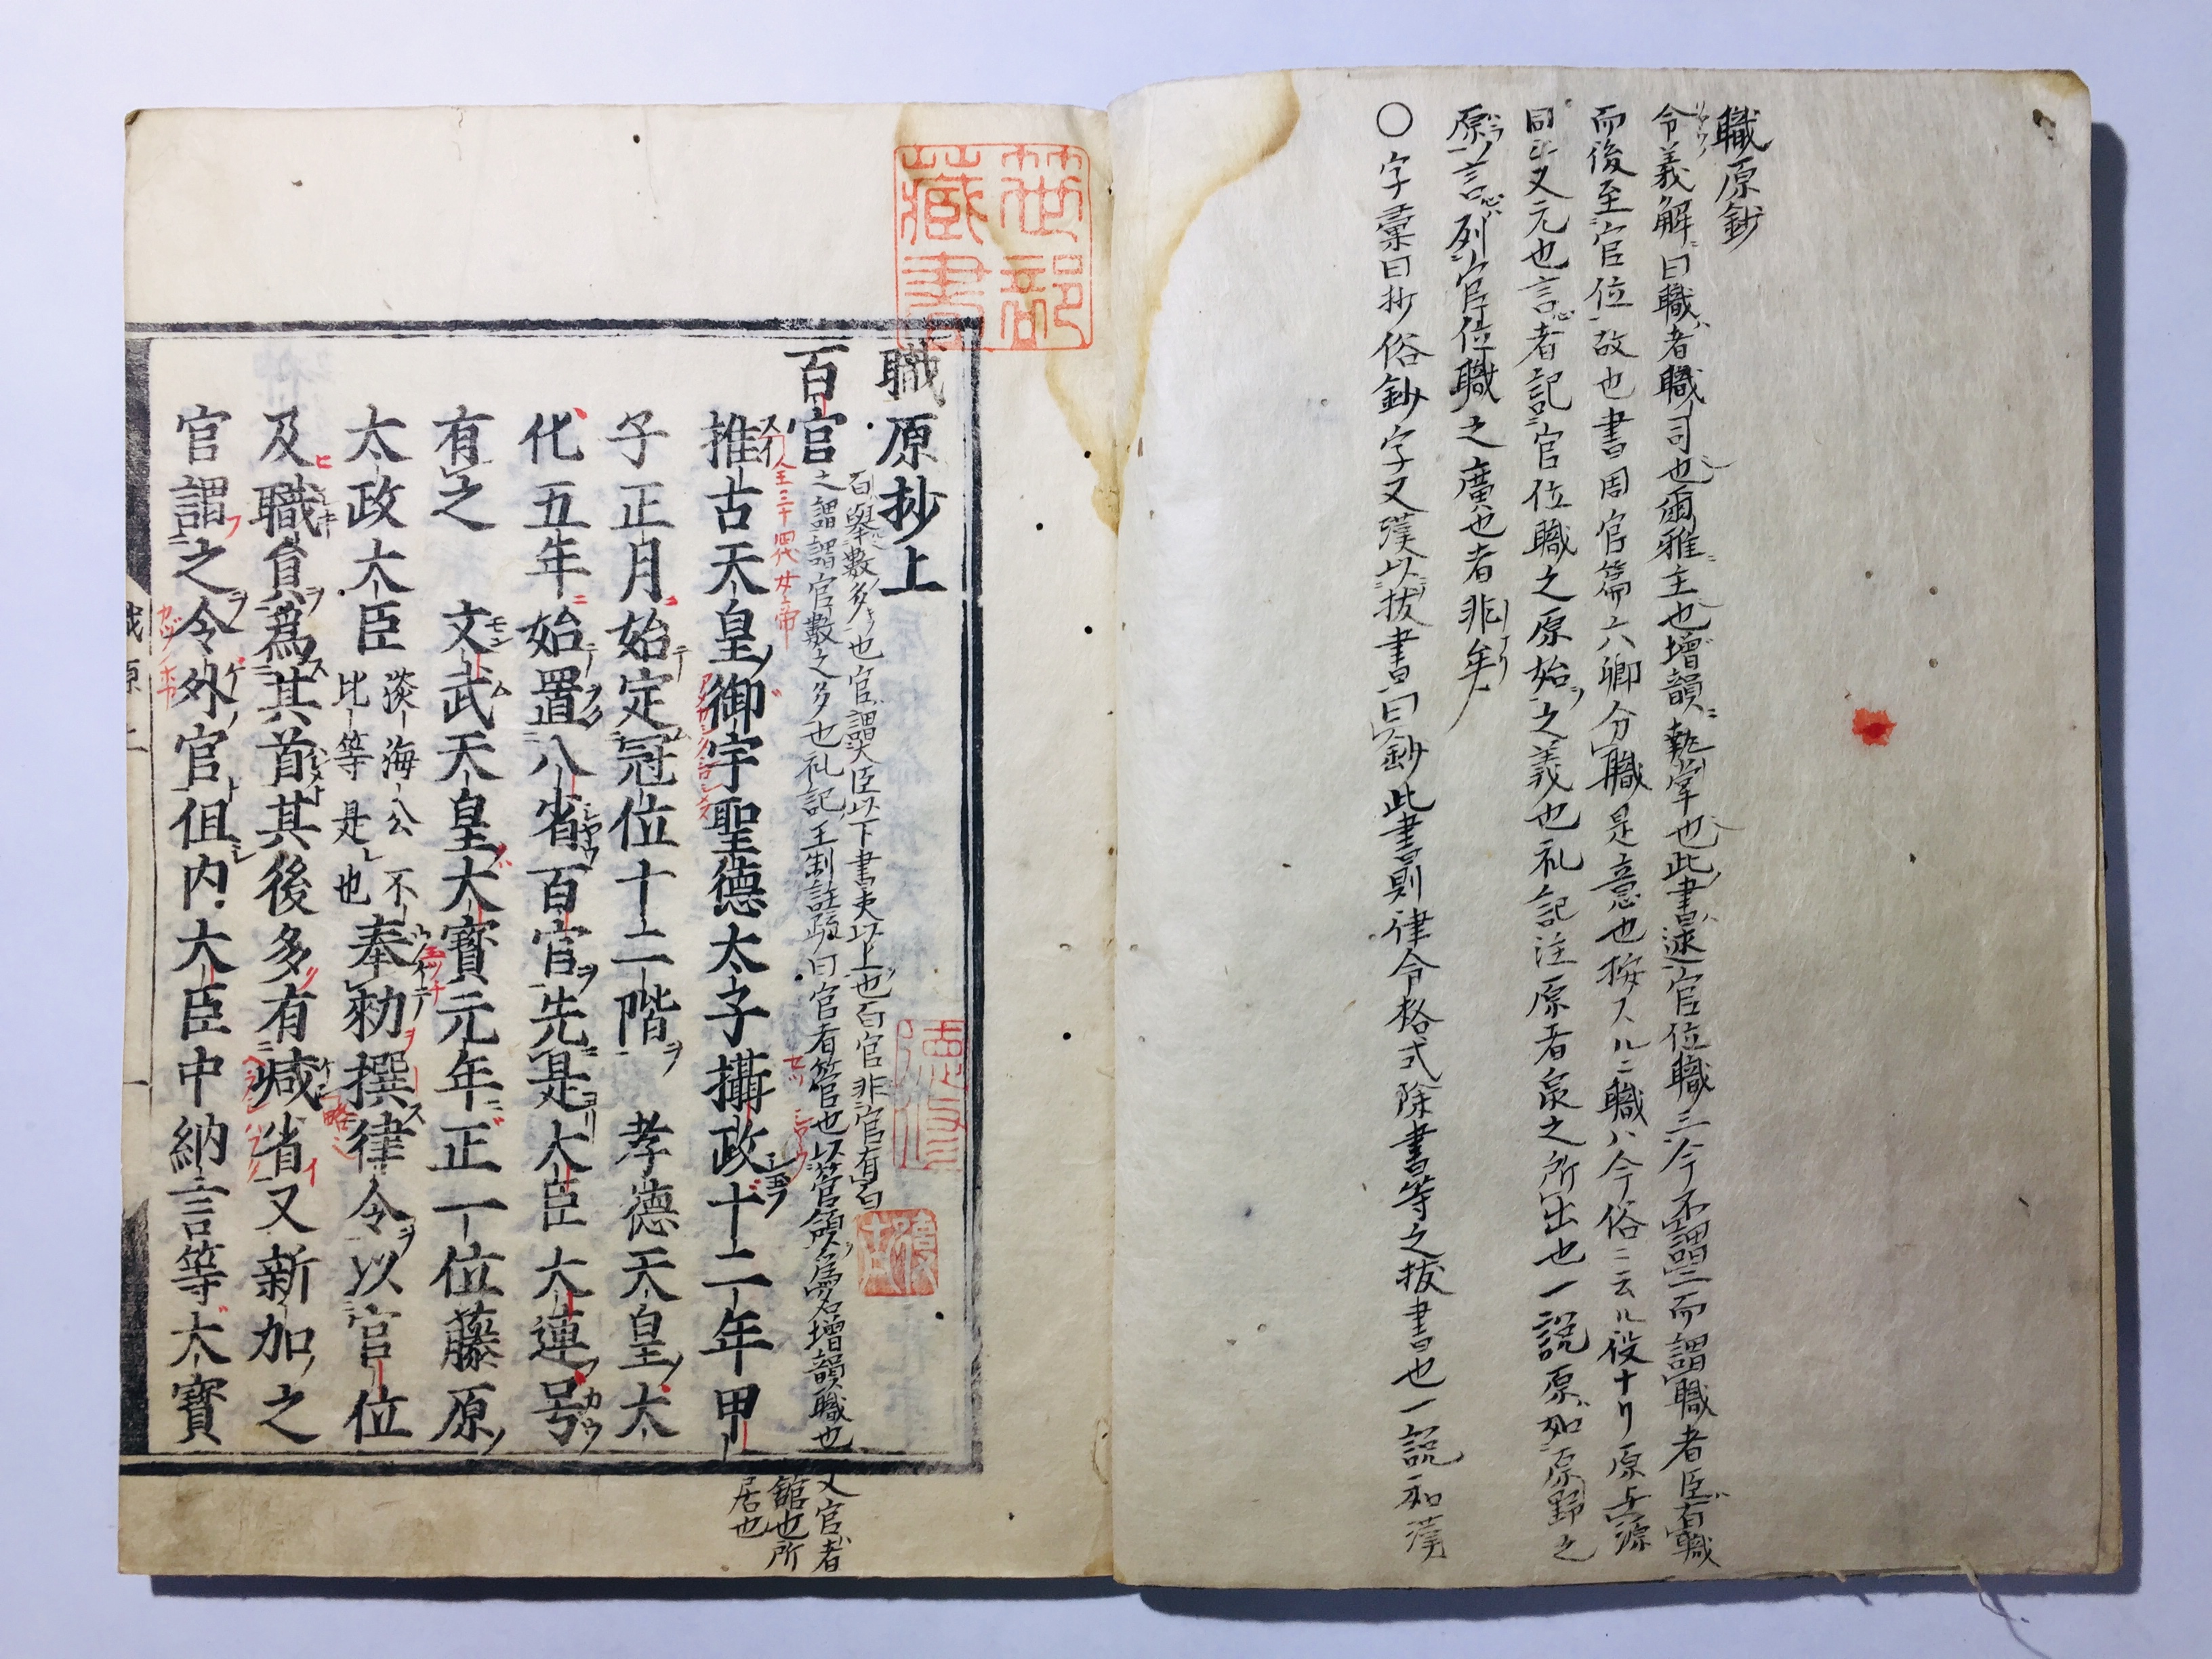 職原鈔
令義解曰職者職司也爾雅主也增韻執掌也此書述官位職三今不謂二而謂職者臣有職
而後至官位故也書周官篇六卿分職是意也按スルニ職ハ今俗ニ云ル役ナリ原与源
同シ又元也言心者記官位職之原始之義也礼記注原者泉之所出也一説原如原野之
原言心列官位職之廣也者非矣
〇字彙曰抄俗鈔字又漢以拔書曰鈔此書則律令格式除書等之拔書也一説和漢
職原抄上
百官
百舉數多也官謂大臣以下書吏以上也百官非官有百
之謂謂官數之多也礼記王制註疏曰官者管也以管領爲名增韻職也
又官者
舘也所
居也
人王三十四代女帝
推古天皇御宇聖德太子攝政十二年甲
子正月始定冠位十二階 孝德天皇大
化五年始置八省百官先是大臣大連号
有之 文武天皇大寶元年正一位藤原
太政大臣
淡海公不
比等是也
奉勑撰律令以官位
及職員爲其首其後多有減省又新加之
官謂之令外官但内大臣中納言等大寶
職原上
一
藏書